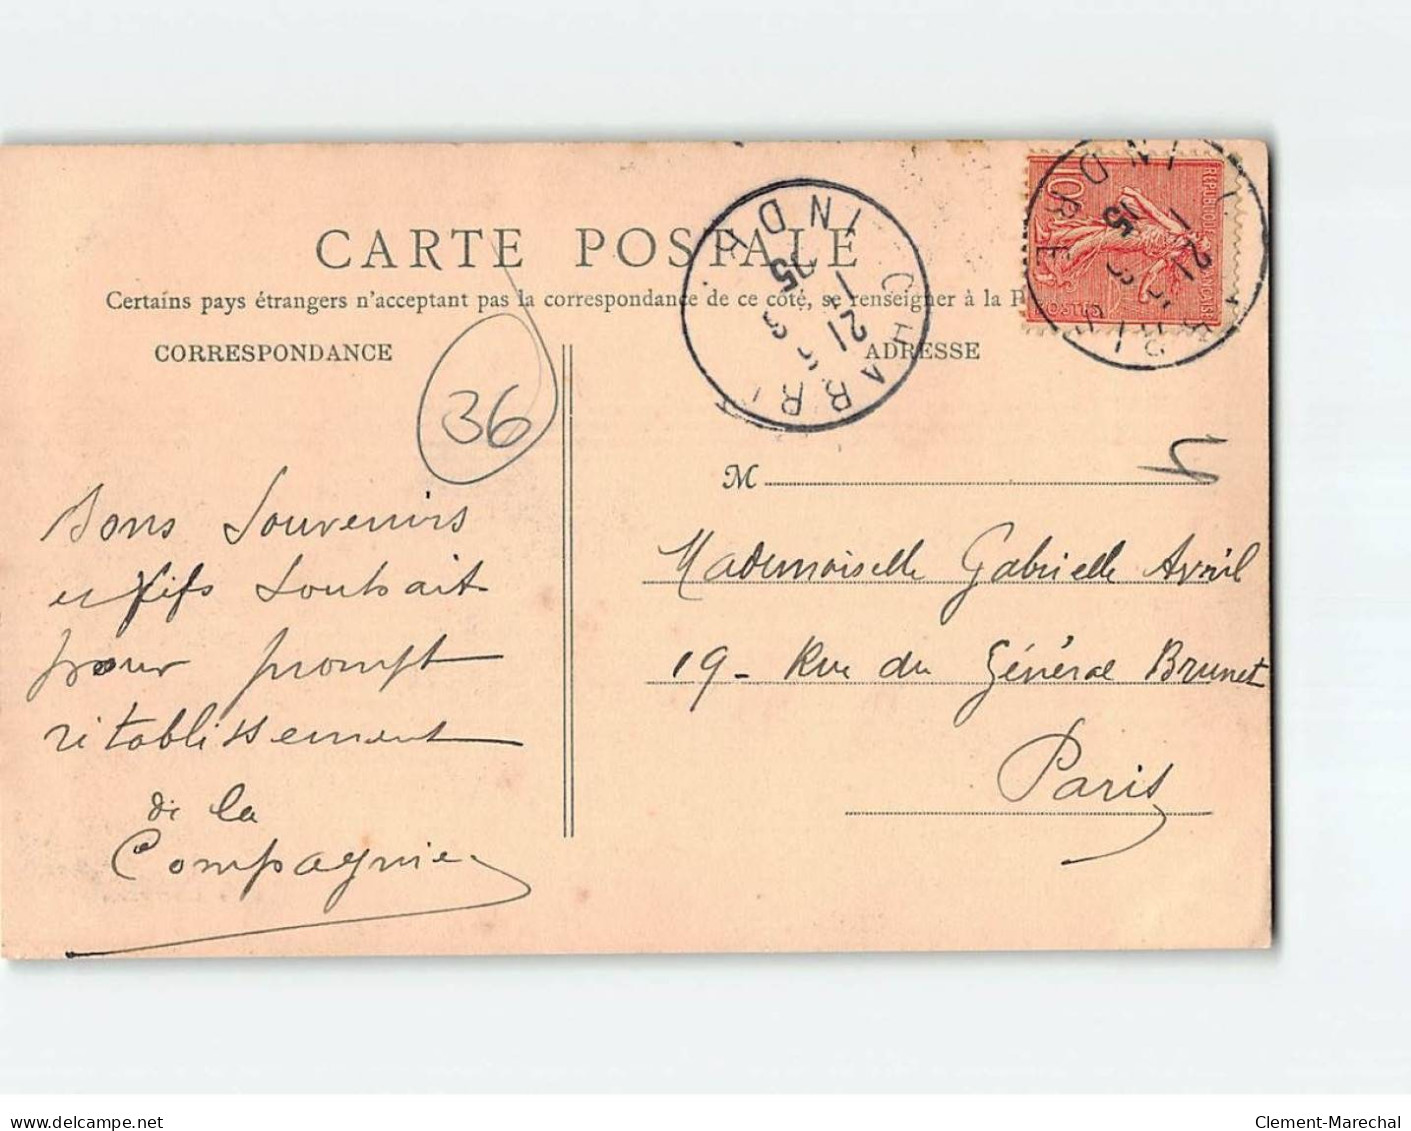 CARTE POSTALE
Certains pays étrangers n'acceptent pas la correspondance de ce côté, se renseigner à la
CORRESPONDANCE
ADRESSE
36
M
Bons Souvenirs
et Vifs Souhait
pour prompt
rétablissement
de la
Compagnie
Mademoiselle Gabrielle Avril
19 - Rue du Général Brunet
Paris
CHABRIS
INDRE
21
REPUBLIQUE FRANÇAISE
10
delcampe.net
Clement-Marechal